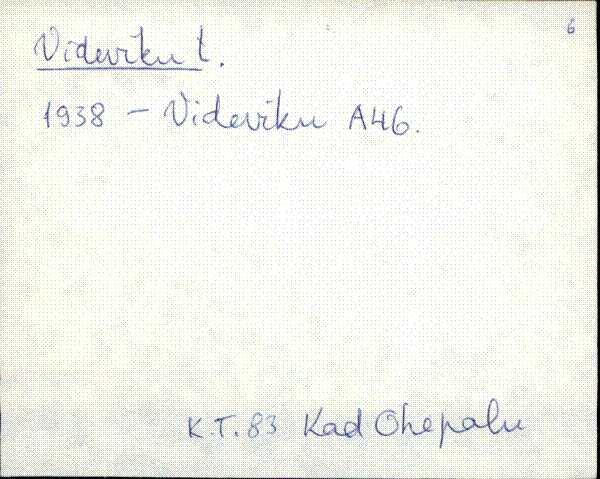 6
Videviku t.
1938 – Videviku A46.
K.T. 83 Kad Ohepalu